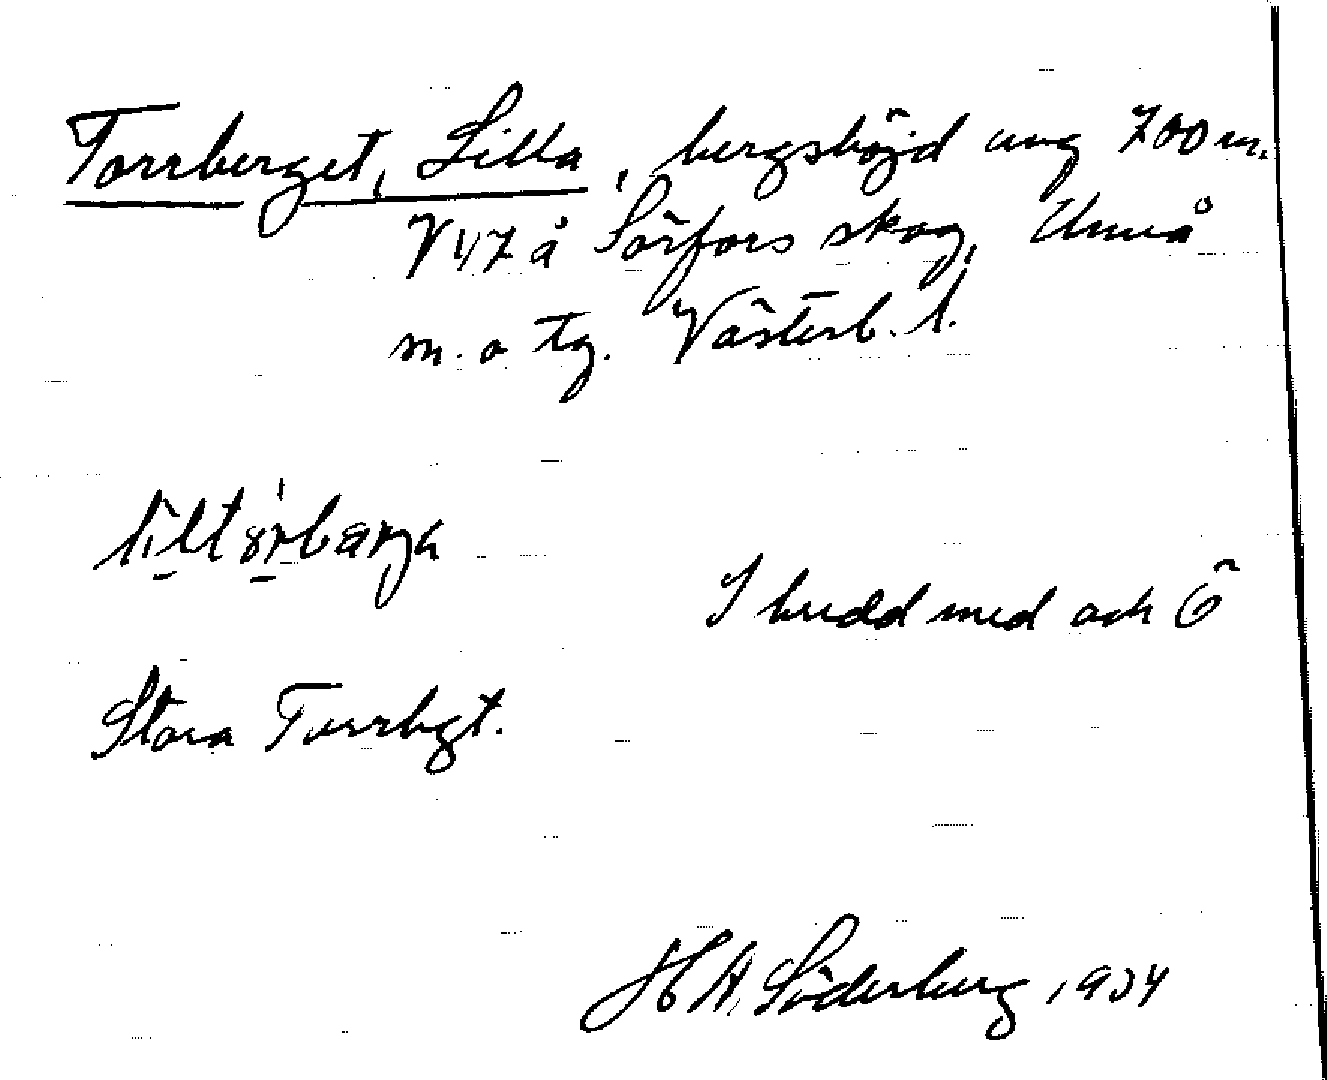 Torrberget, Lilla, bergshöjd ung 700 m.
V 1/7 å Sörfors skog, Umeå
m. o tg. Västerb. l.
liltörbärjə
I bredd med och Ö
Stora Torrbgt.
H A. Söderberg 1934